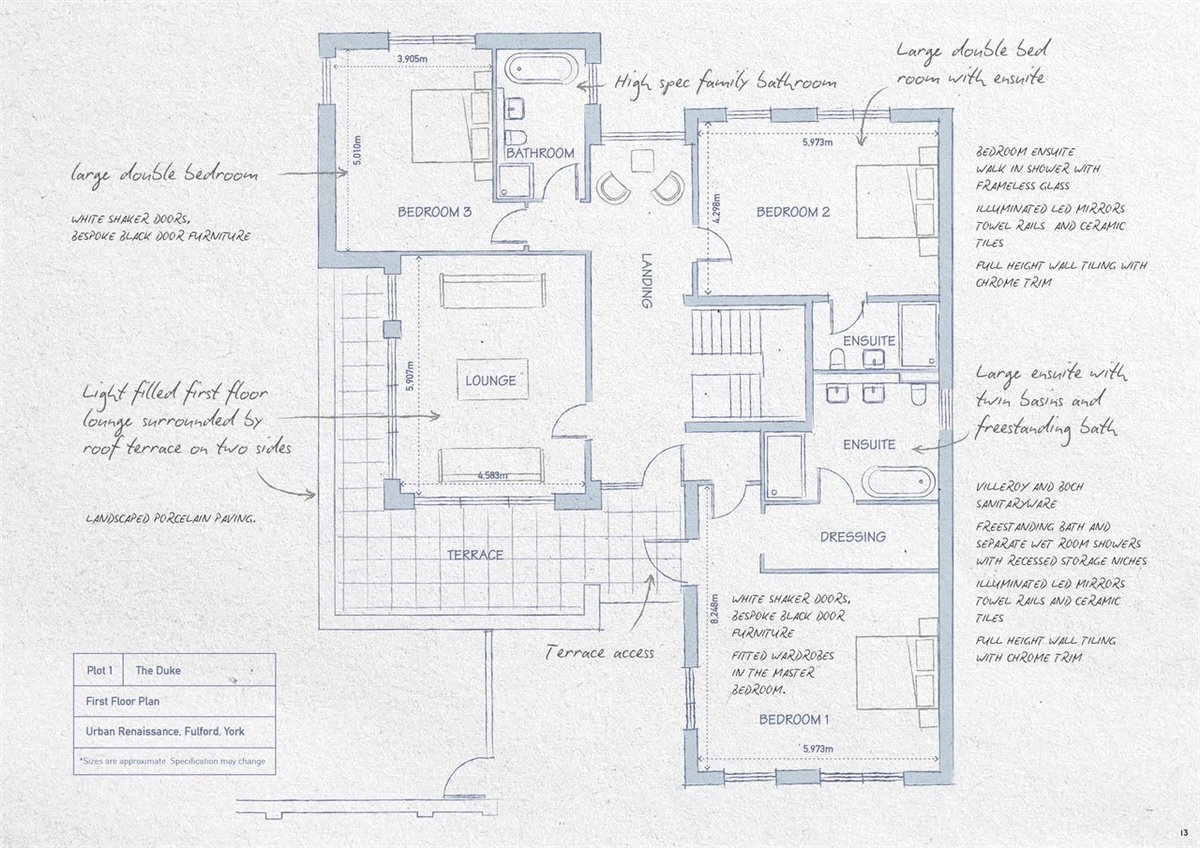 3.905m
5.010m
BATHROOM
BEDROOM 3
High spec family bathroom
Large double bed
room with ensuite
5.973m
4.298m
BEDROOM 2
large double bedroom
WHITE SHAKER DOORS,
BESPOKE BLACK DOOR FURNITURE
BEDROOM ENSUITE
WALK IN SHOWER WITH
FRAMELESS GLASS
ILLUMINATED LED MIRRORS
TOWEL RAILS AND CERAMIC
TILES
FULL HEIGHT WALL TILING WITH
CHROME TRIM
LANDING
ENSUITE
LOUNGE
5.907m
4.583m
Light filled first floor
lounge surrounded by
roof terrace on two sides
LANDSCAPED PORCELAIN PAVING.
ENSUITE
Large ensuite with
twin basins and
freestanding bath
VILLEROY AND BOCH
SANITARYWARE
FREESTANDING BATH AND
SEPARATE WET ROOM SHOWERS
WITH RECESSED STORAGE NICHES
ILLUMINATED LED MIRRORS
TOWEL RAILS AND CERAMIC
TILES
FULL HEIGHT WALL TILING
WITH CHROME TRIM
DRESSING
TERRACE
Terrace access
8.248m
WHITE SHAKER DOORS,
BESPOKE BLACK DOOR
FURNITURE
FITTED WARDROBES
IN THE MASTER
BEDROOM.
BEDROOM 1
5.973m
Plot 1 The Duke
First Floor Plan
Urban Renaissance, Fulford, York
*Sizes are approximate. Specification may change
13